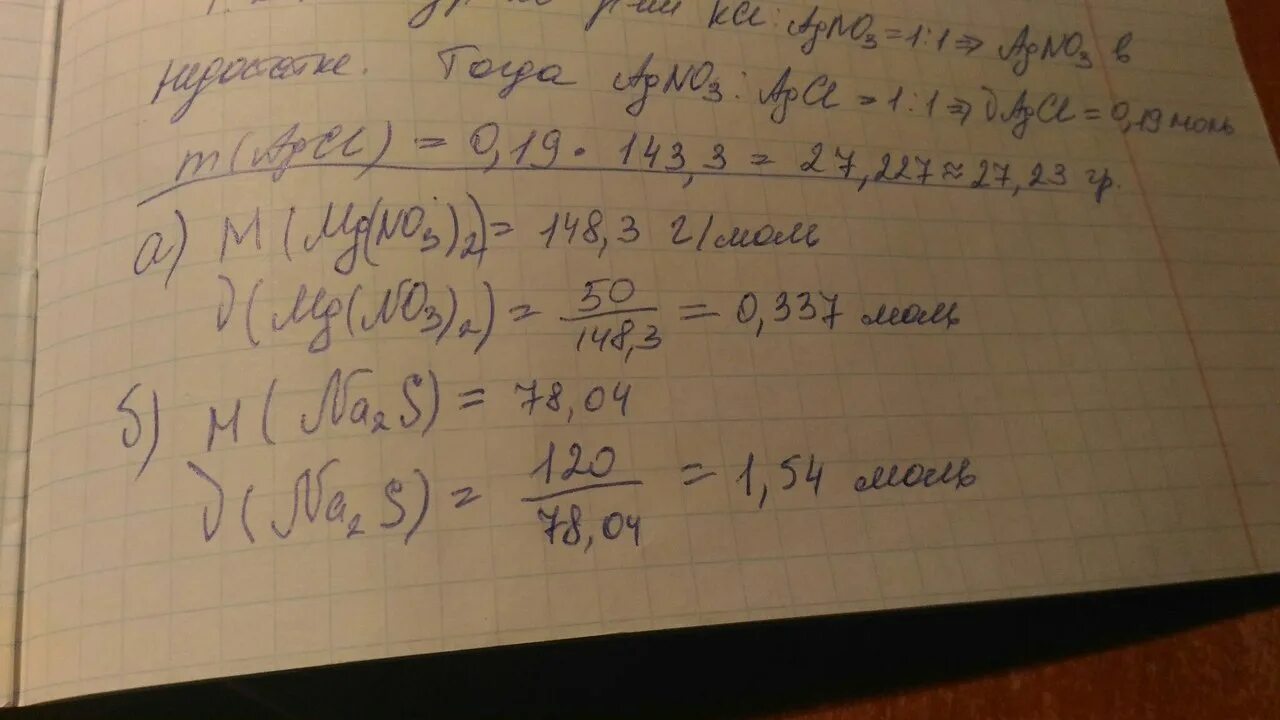 KCl : AgNO₃ = 1:1 ⇒ AgNO₃ в
недостатке. Тогда AgNO₃ : AgCl = 1:1 ⇒ ν AgCl = 0,19 моль
m(AgCl) = 0,19 · 143,3 = 27,227 ≈ 27,23 гр.
а) M(Mg(NO₃)₂) = 148,3 г/моль
ν(Mg(NO₃)₂) = 50/148,3 = 0,337 моль
б) M(Na₂S) = 78,04
ν(Na₂S) = 120/78,04 = 1,54 моль